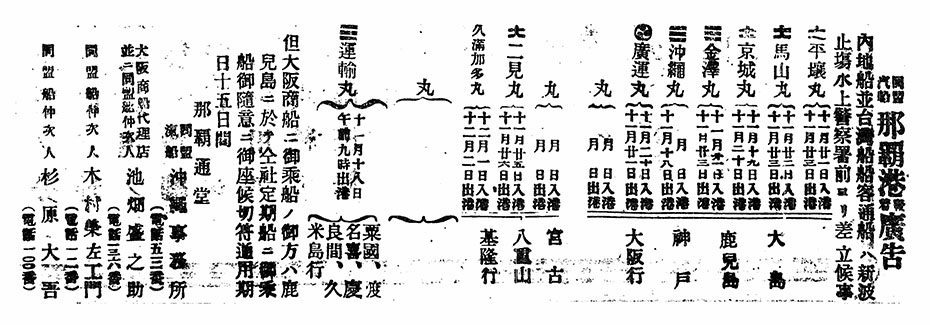 同盟汽船 那覇港 廣告
内地船並台灣船船客通船ハ新波
止塲水上警察署前ヨリ差立候事
平壤丸 十一月廿一日入港 十一月廿二日出港
馬山丸 十一月廿二日入港 十一月廿三日出港 大島
京城丸 十一月十九日入港 十一月二十日出港
金澤丸 十一月廿三日出港 鹿兒島
沖繩丸 十一月十八日出港 神戸
廣運丸 十一月二十日入港 十一月廿二日出港 大阪行
丸 月 日入港 月 日出港
丸 月 日 月 日出港 宮古
二見丸 十一月廿五日入港 十一月廿六日出港 八重山
久滿加多丸 十二月一日入港 十二月二日出港 基隆行
丸
運輸丸 十一月十八日午前九時出港 粟國、渡名喜、慶良間、久米島行
但大阪商船ニ御乘船ノ御方ハ鹿
兒島ニ於テ仝社定期船ニ御乘
船御隨意ニ御座候切符通用期
日十五日間
那覇通堂
同盟滊船 沖繩事務所
(電話五三番)
大阪商船代理店並ニ同盟船仲次人 池畑盛之助
(電話一三六番)
同盟船仲次人 木村榮左工門
(電話一二番)
同盟船仲次人 杉原大吾
(電話一〇〇番)